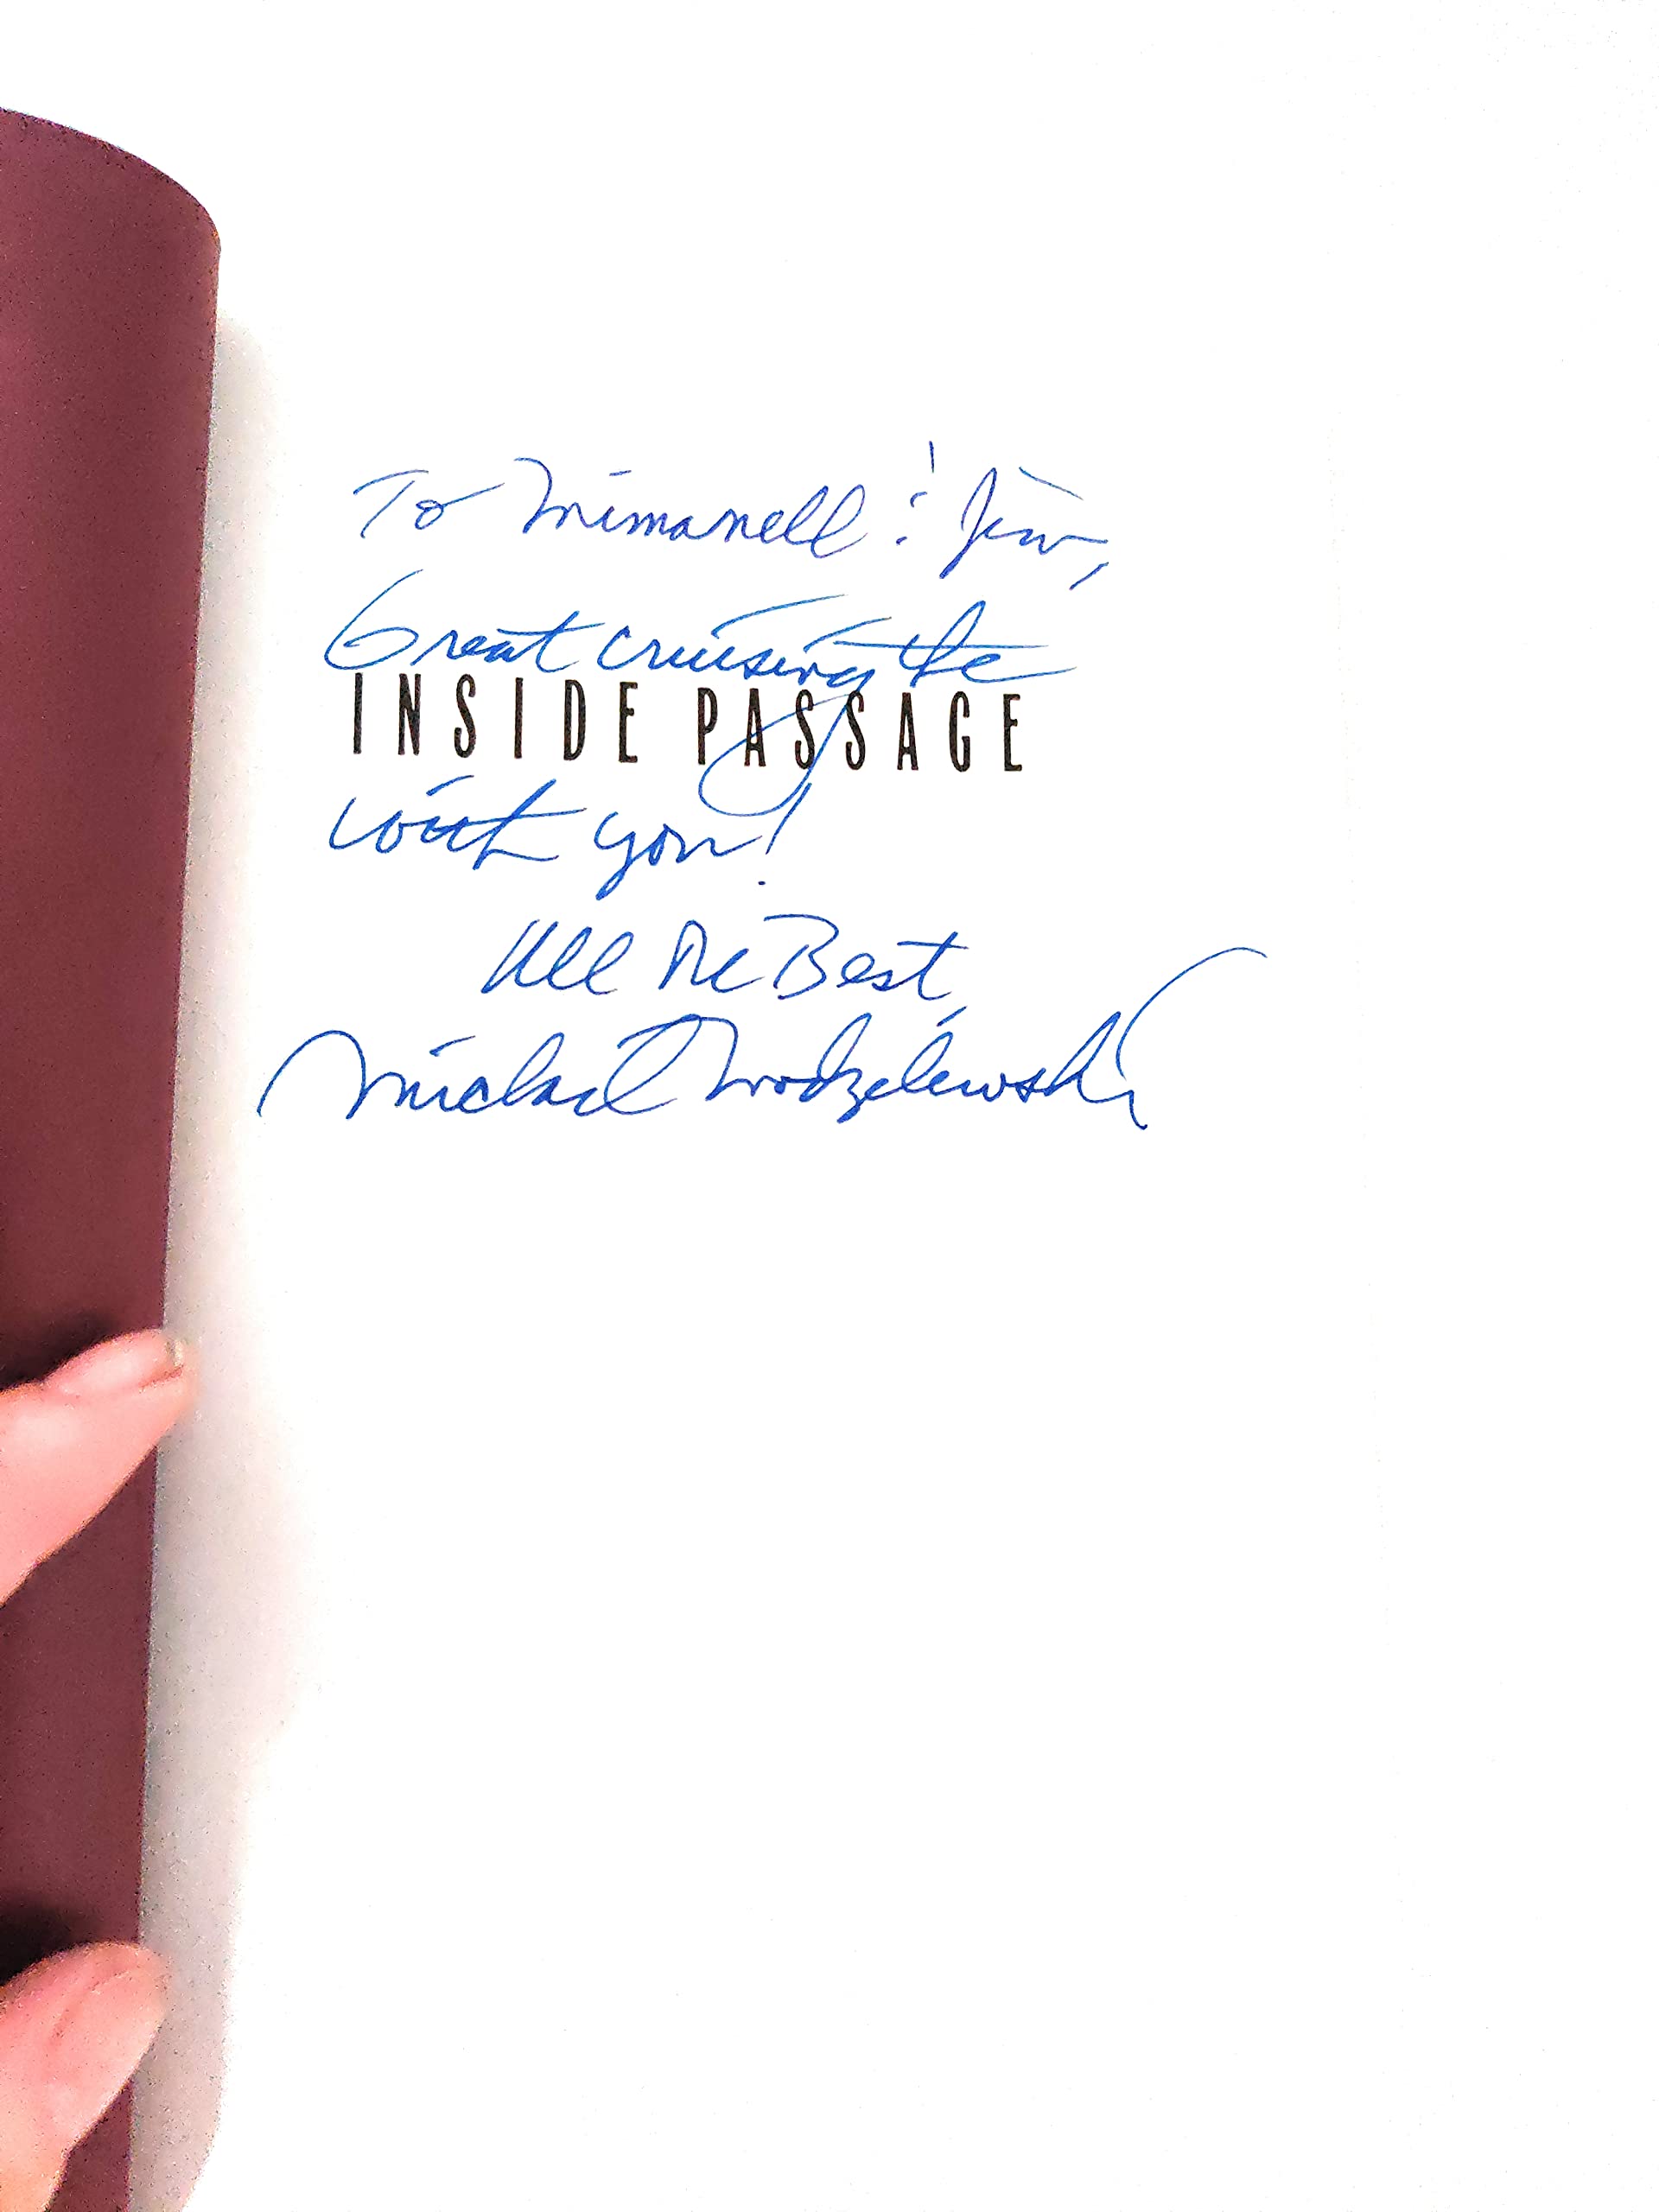 To Mimanell : Jim,
Great cruising the
INSIDE PASSAGE
with you!
All the Best,
Michael Modzelewski